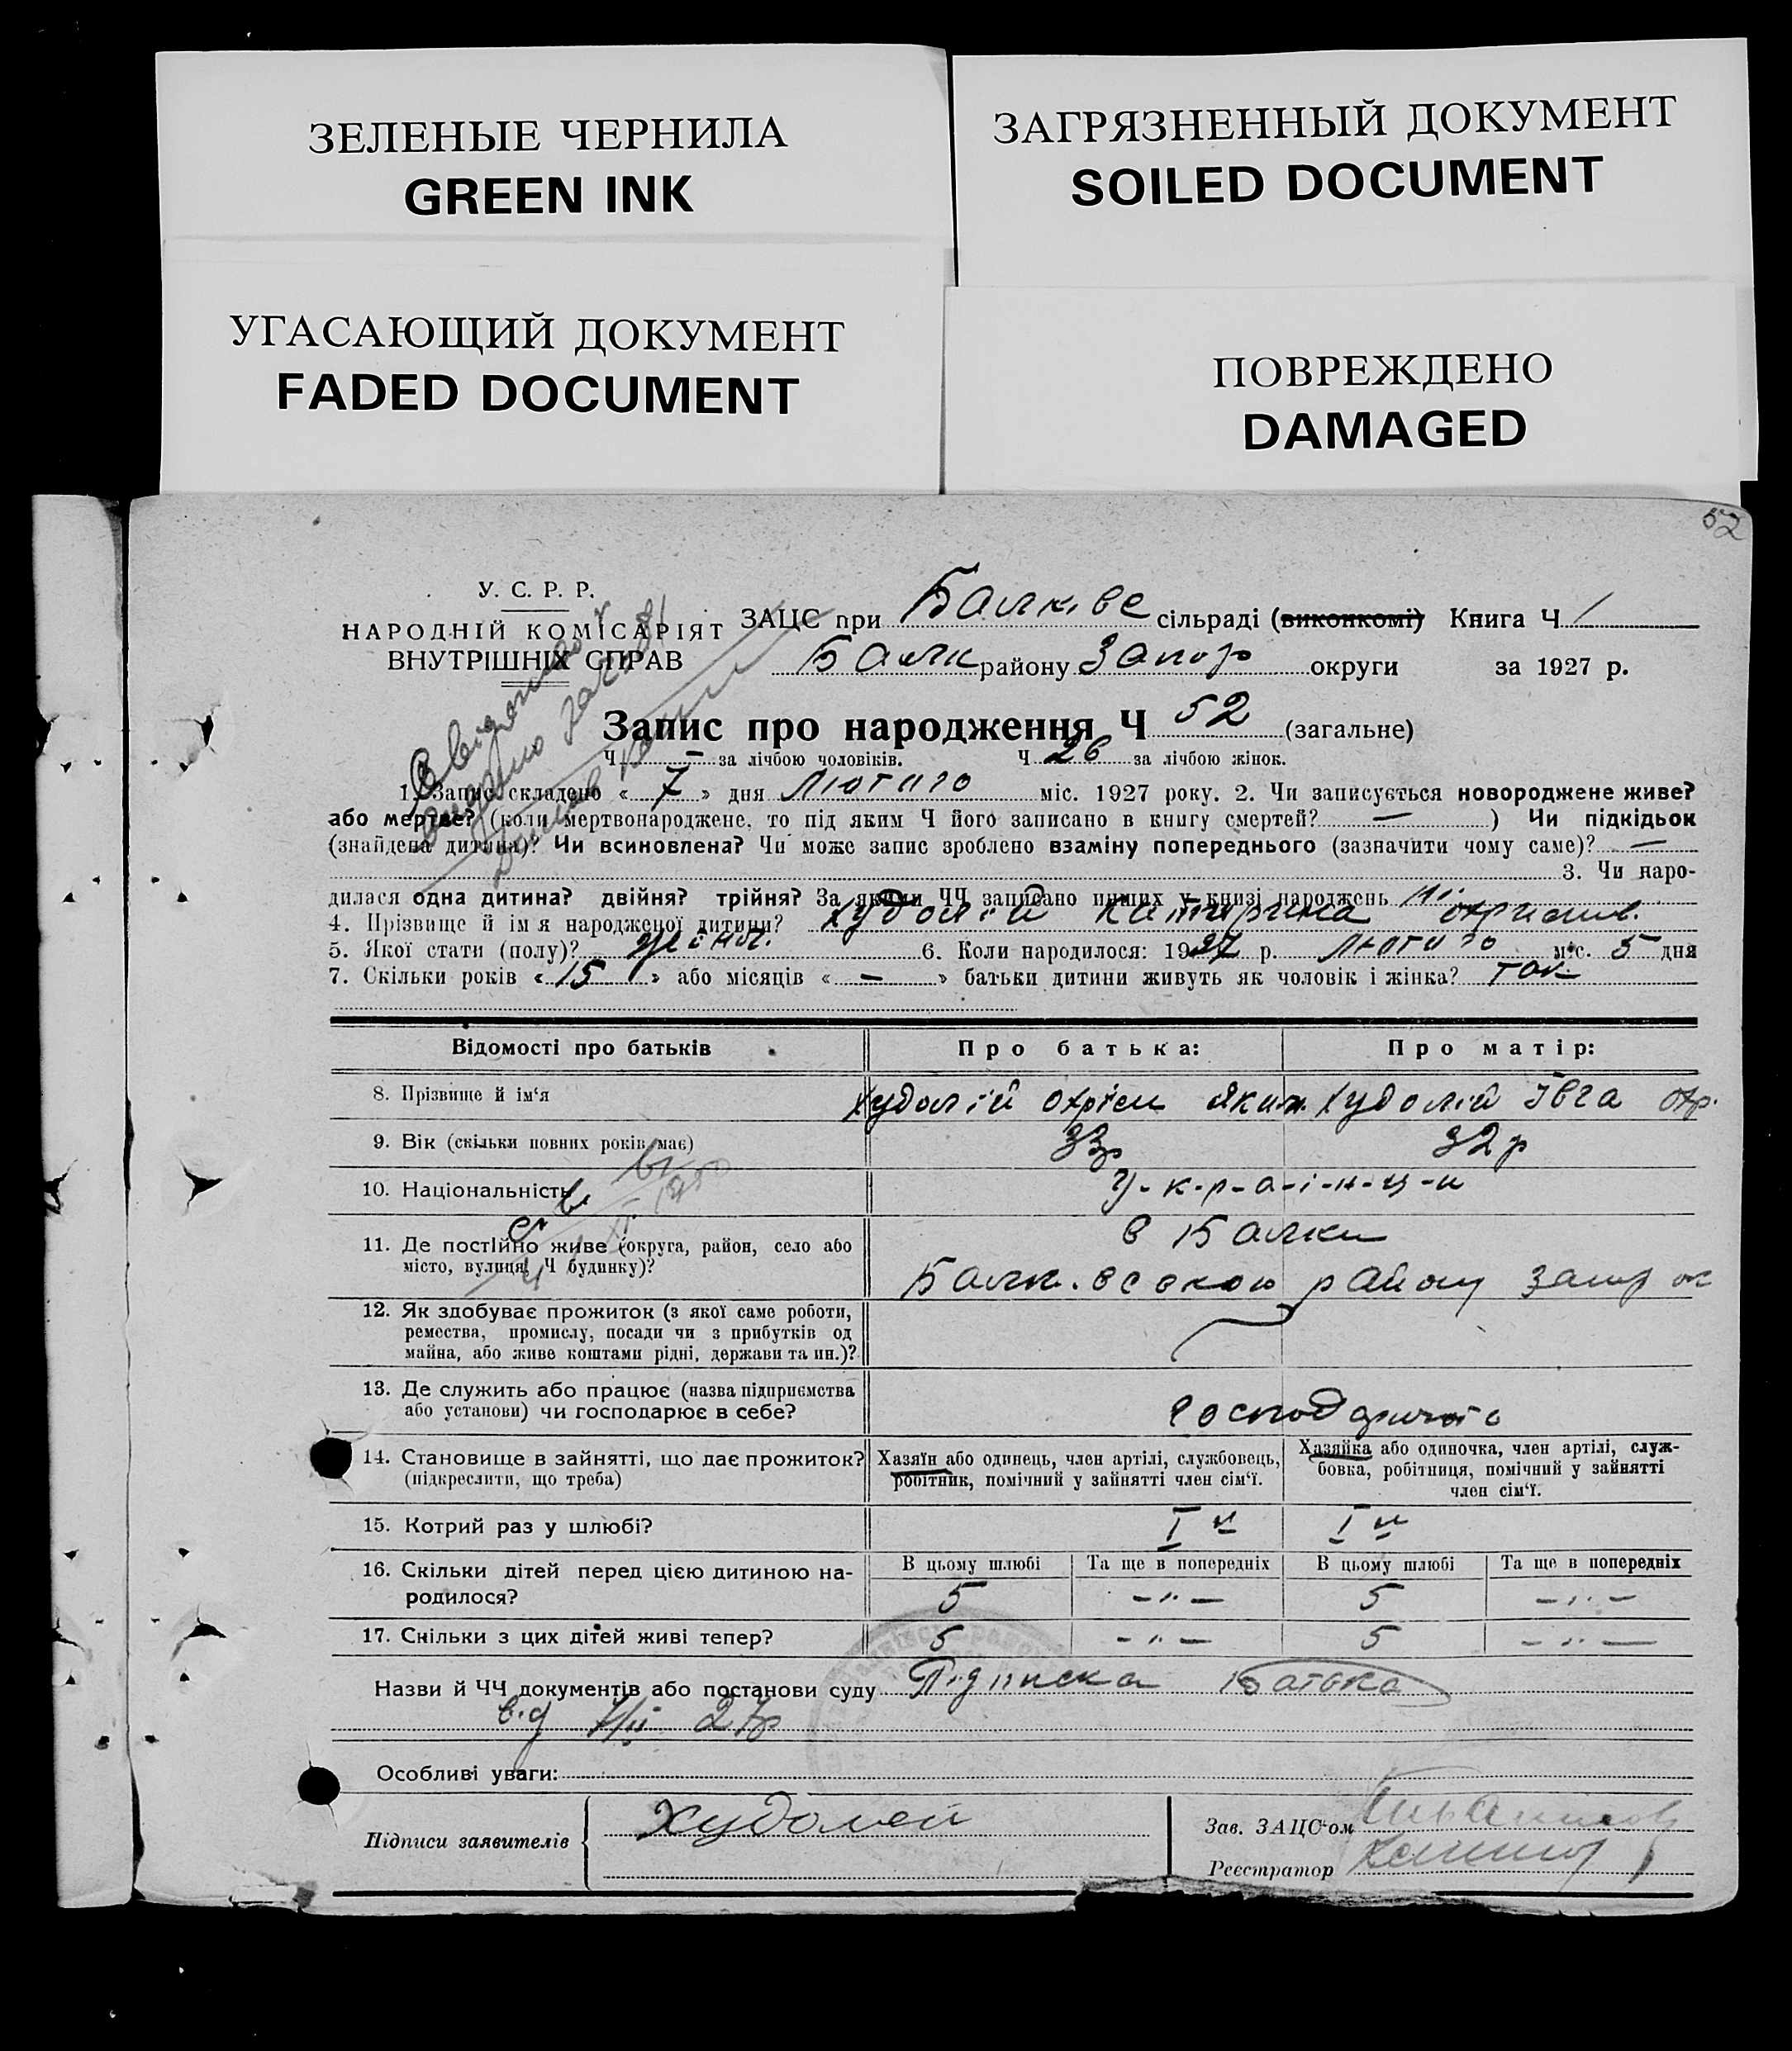 ЗЕЛЕНЫЕ ЧЕРНИЛА
GREEN INK
ЗАГРЯЗНЕННЫЙ ДОКУМЕНТ
SOILED DOCUMENT
УГАСАЮЩИЙ ДОКУМЕНТ
FADED DOCUMENT
ПОВРЕЖДЕНО
DAMAGED
52
У. С. Р. Р.
НАРОДНІЙ КОМІСАРІЯТ
ВНУТРІШНІХ СПРАВ
ЗАЦС при сільраді (виконкомі) Книга Ч 1
Балк району Запор округи за 1927 р.
Запис про народження Ч 52 (загальне)
Ч – за лічбою чоловіків. Ч 26 за лічбою жінок.
1. Запис складено « 7 » дня Лютого міс. 1927 року. 2. Чи записується новороджене живе?
або мертве? (коли мертвонароджене, то під яким Ч його записано в книгу смертей? — ) Чи підкідьок
(знайдена дитина)? Чи всиновлена? Чи може запис зроблено взаміну попереднього (зазначити чому саме)? —
3. Чи наро-
дилася одна дитина? двійня? трійня? За якими ЧЧ записано инших у книзі народжень
4. Прізвище й ім я народженої дитини? Худолій Катерина
5. Якої стати (полу)? жіноч. 6. Коли народилося: 1927 р. Лютого міс. 5 дня
7. Скільки років « 15 » або місяців « — » батьки дитини живуть як чоловік і жінка? Так
Відомості про батьків Про батька: Про матір:
8. Прізвище й ім'я Худолій Охрім Яким. Худолій Івга Охр.
9. Вік (скільки повних років має) 33р 32р
10. Національність У-к-р-а-і-н-ц-и
11. Де постійно живе (округа, район, село або
місто, вулиця, Ч будинку)?
в Балки
району Запор ок
12. Як здобуває прожиток (з якої саме роботи,
ремества, промислу, посади чи з прибутків од
майна, або живе коштами рідні, держави та ин.)?
13. Де служить або працює (назва підприємства
або установи) чи господарює в себе?
14. Становище в зайнятті, що дає прожиток?
(підкреслити, що треба)
Хазяїн або одинець, член артілі, службовець,
робітник, помічний у зайнятті член сім'ї.
Хазяйка або одиночка, член артілі, служ-
бовка, робітниця, помічний у зайнятті
член сім'ї.
15. Котрий раз у шлюбі? І й І й
16. Скільки дітей перед цією дитиною на-
родилося?
В цьому шлюбі Та ще в попередніх В цьому шлюбі Та ще в попередніх
5 – " – 5 – " –
17. Скільки з цих дітей живі тепер? 5 – " – 5 – " –
Назви й ЧЧ документів або постанови суду Підписка батька
від 7/ІІ 27р
Особливі уваги:
Підписи заявителів Худолей
Зав. ЗАЦС'ом
Реєстратор